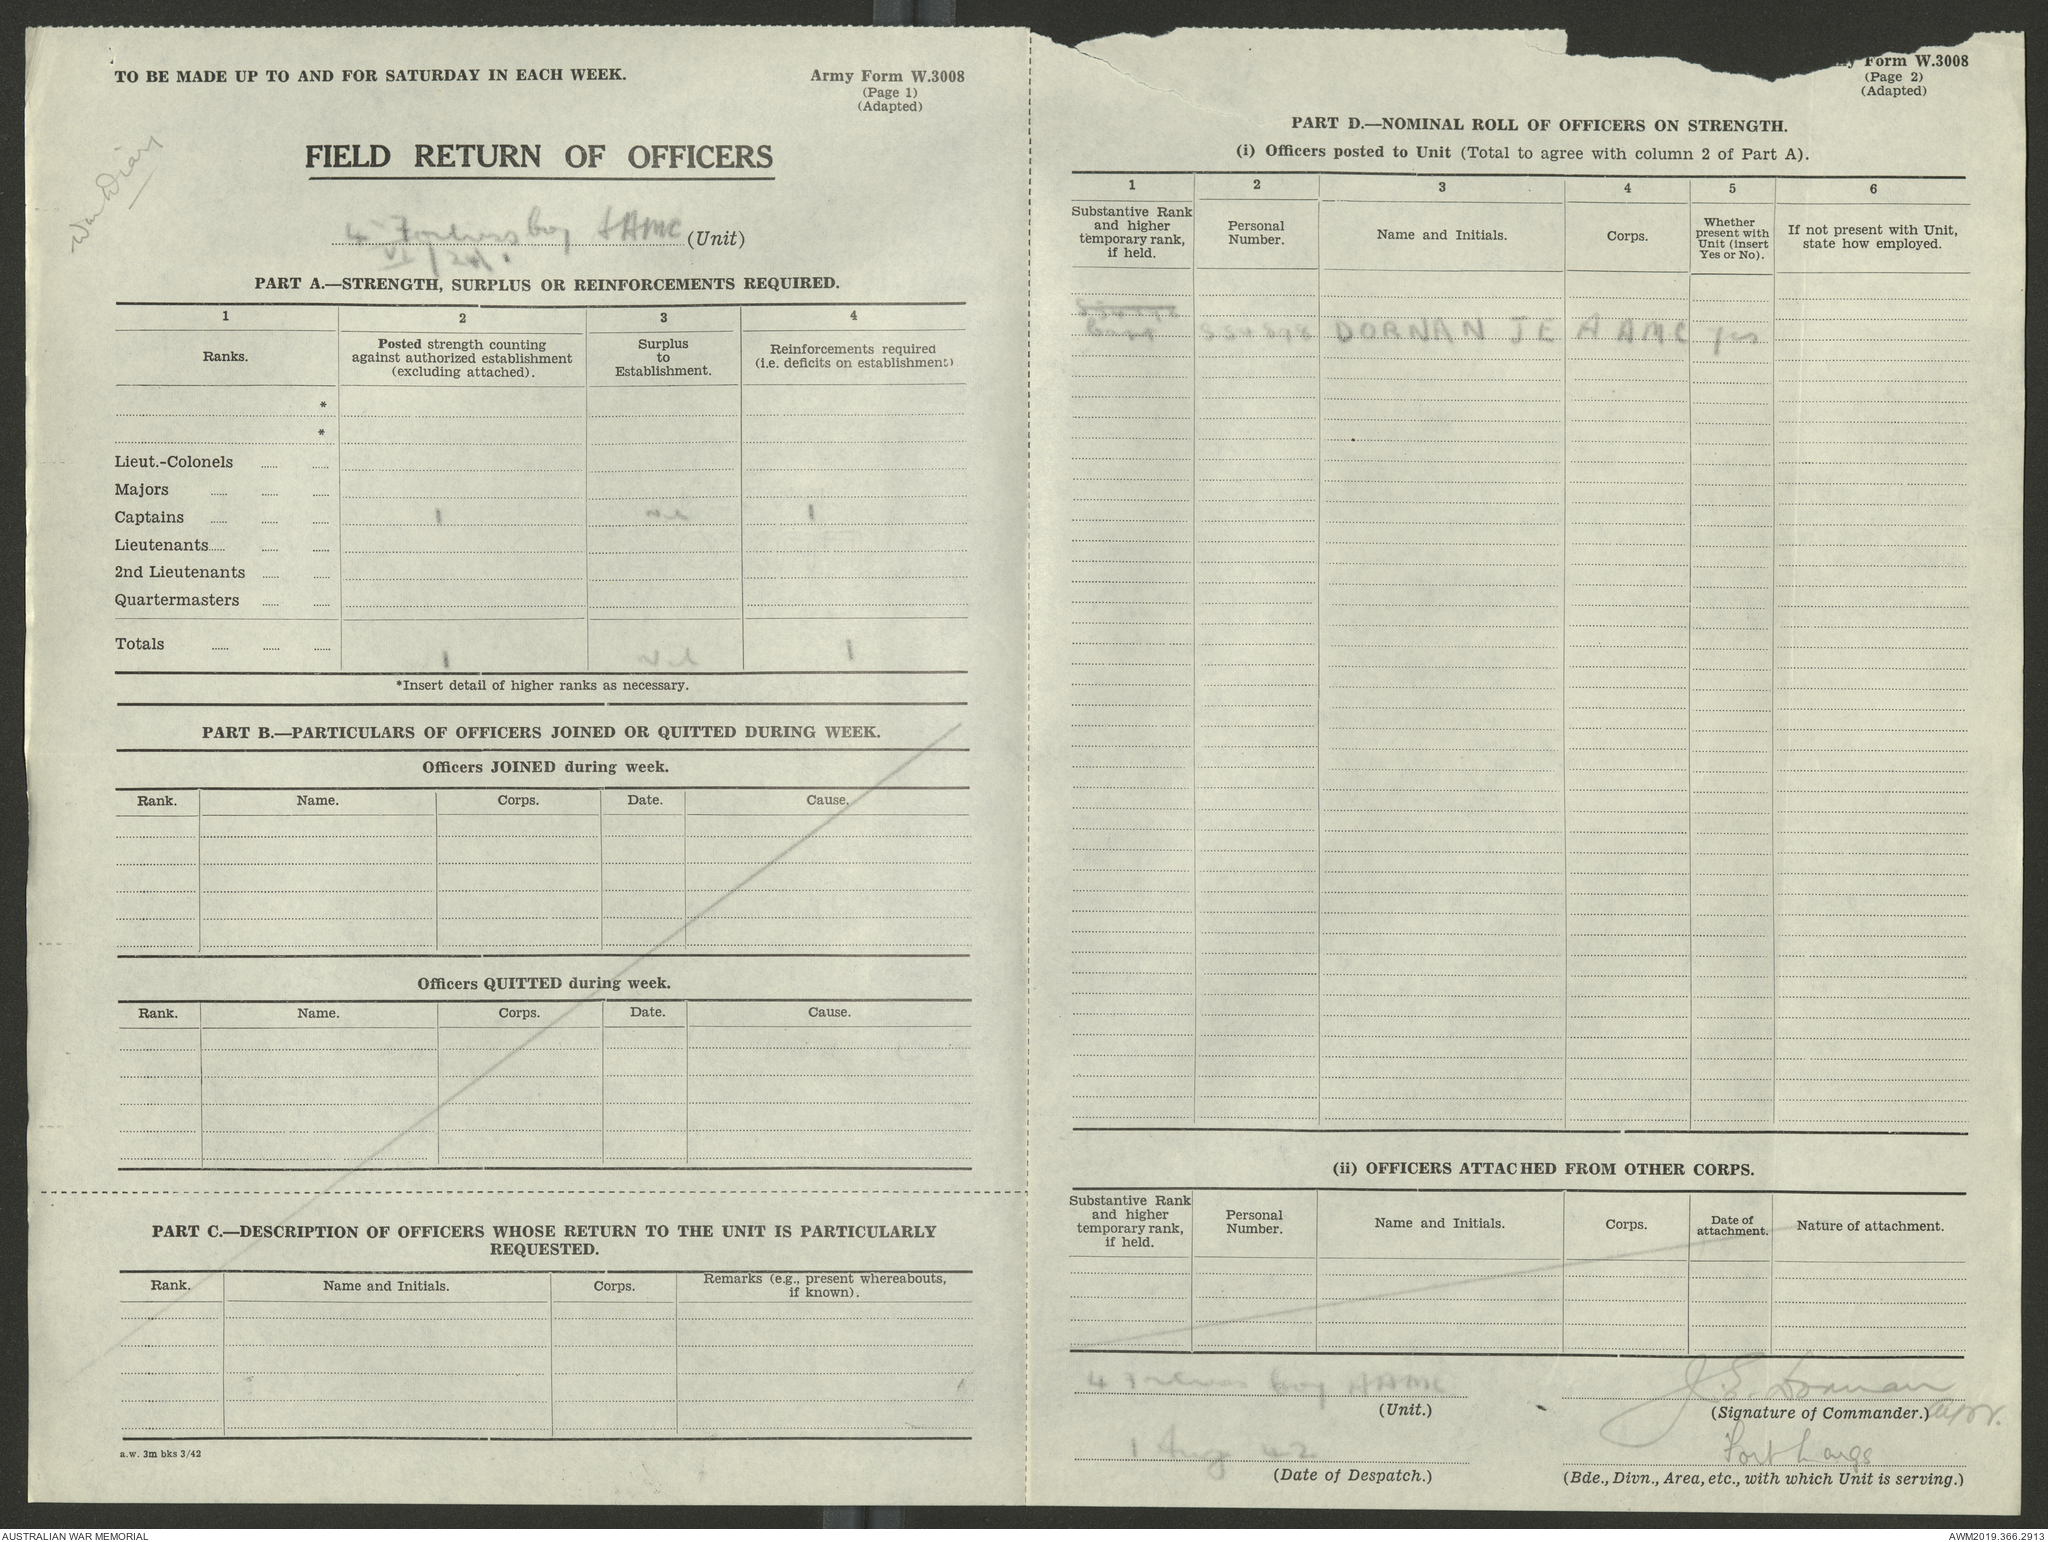 TO BE MADE UP TO AND FOR SATURDAY IN EACH WEEK.
Army Form W.3008
(Page 1)
(Adapted)
War Diary
FIELD RETURN OF OFFICERS
4 Fortress Coy AAMC (Unit)
PART A.—STRENGTH, SURPLUS OR REINFORCEMENTS REQUIRED.
1 2 3 4
Ranks.
Posted strength counting
against authorized establishment
(excluding attached).
Surplus
to
Establishment.
Reinforcements required
(i.e. deficits on establishment)
*
*
Lieut.-Colonels
Majors
Captains 1 Nil 1
Lieutenants
2nd Lieutenants
Quartermasters
Totals 1 Nil 1
*Insert detail of higher ranks as necessary.
PART B.—PARTICULARS OF OFFICERS JOINED OR QUITTED DURING WEEK.
Officers JOINED during week.
Rank. Name. Corps. Date. Cause.
Officers QUITTED during week.
Rank. Name. Corps. Date. Cause.
PART C.—DESCRIPTION OF OFFICERS WHOSE RETURN TO THE UNIT IS PARTICULARLY
REQUESTED.
Rank. Name and Initials. Corps.
Remarks (e.g., present whereabouts,
if known).
a.w. 3m bks 3/42
Form W.3008
(Page 2)
(Adapted)
PART D.—NOMINAL ROLL OF OFFICERS ON STRENGTH.
(i) Officers posted to Unit (Total to agree with column 2 of Part A).
1 2 3 4 5 6
Substantive Rank
and higher
temporary rank,
if held.
Personal
Number.
Name and Initials.
Corps.
Whether
present with
Unit (insert
Yes or No).
If not present with Unit,
state how employed.
DORNAN J E AAMC yes
(ii) OFFICERS ATTACHED FROM OTHER CORPS.
Substantive Rank
and higher
temporary rank,
if held.
Personal
Number.
Name and Initials.
Corps.
Date of
attachment.
Nature of attachment.
4 Fortress Coy AAMC
(Unit.)
J.E. Dornan
(Signature of Commander.) Capt.
1 Aug 42
(Date of Despatch.)
Fort Largs
(Bde., Divn., Area, etc., with which Unit is serving.)
AUSTRALIAN WAR MEMORIAL
AWM2019.366.2913